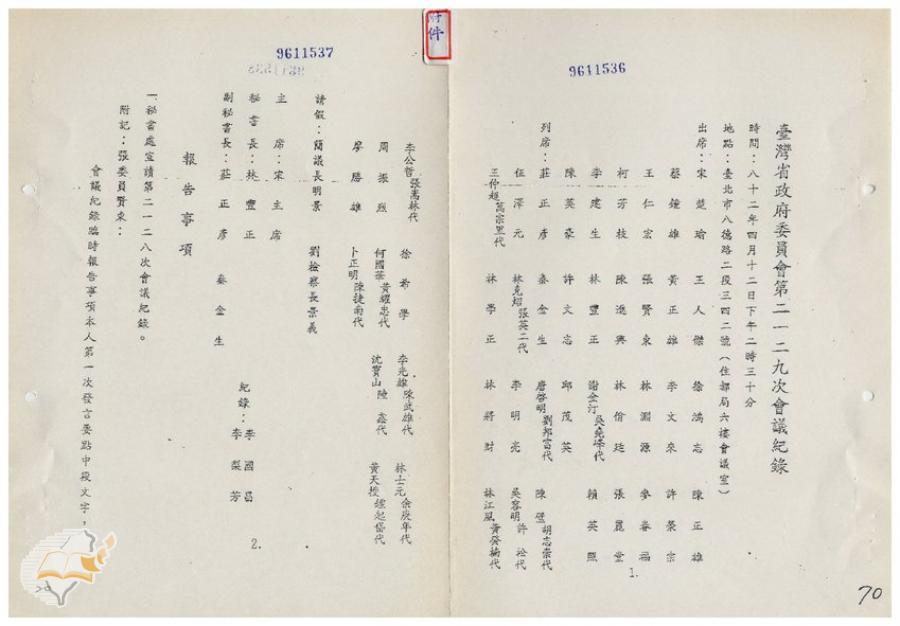 附件
9611536
臺灣省政府委員會第二一二九次會議紀錄
時間：八十二年四月十二日下午二時三十分
地點：臺北市八德路二段三四二號（住都局六樓會議室）
出席：宋楚瑜 王人傑 徐鴻志 陳正雄
蔡鐘雄 黃正雄 李文來 許榮宗
王仁宏 張賢東 林淵源 麥春福
柯芳枝 陳進興 林佾廷 張麗堂
李建生 林豐正 謝金汀吳堯峰代 賴英照
陳英豪 許文志 邱茂英
列席：莊正彥 秦金生 唐啓明劉邦富代 陳璧胡志崇代
伍澤元 林克炤張英二代 李明亮 吳容明許松代
王仲超萬宗里代 林學正 林將財 林江風黃癸楠代
1.
70
9611537
李公哲張嵩林代 徐希學 李光雄陳武雄代 林士元余庚年代
周振烈 何國華黃耀忠代 沈寶山陸鑫代 黃天授鍾起岱代
廖勝雄 卜正明陳捷南代
請假：簡議長明景 劉檢察長景義
主席：宋主席
秘書長：林豐正
副秘書長：莊正彥 秦金生
紀錄：李國昌
李梨芳
報告事項
一、秘書處宣讀第二一二八次會議紀錄。
附記：張委員賢東：
會議紀錄臨時報告事項本人第一次發言要點中段文字，
2.